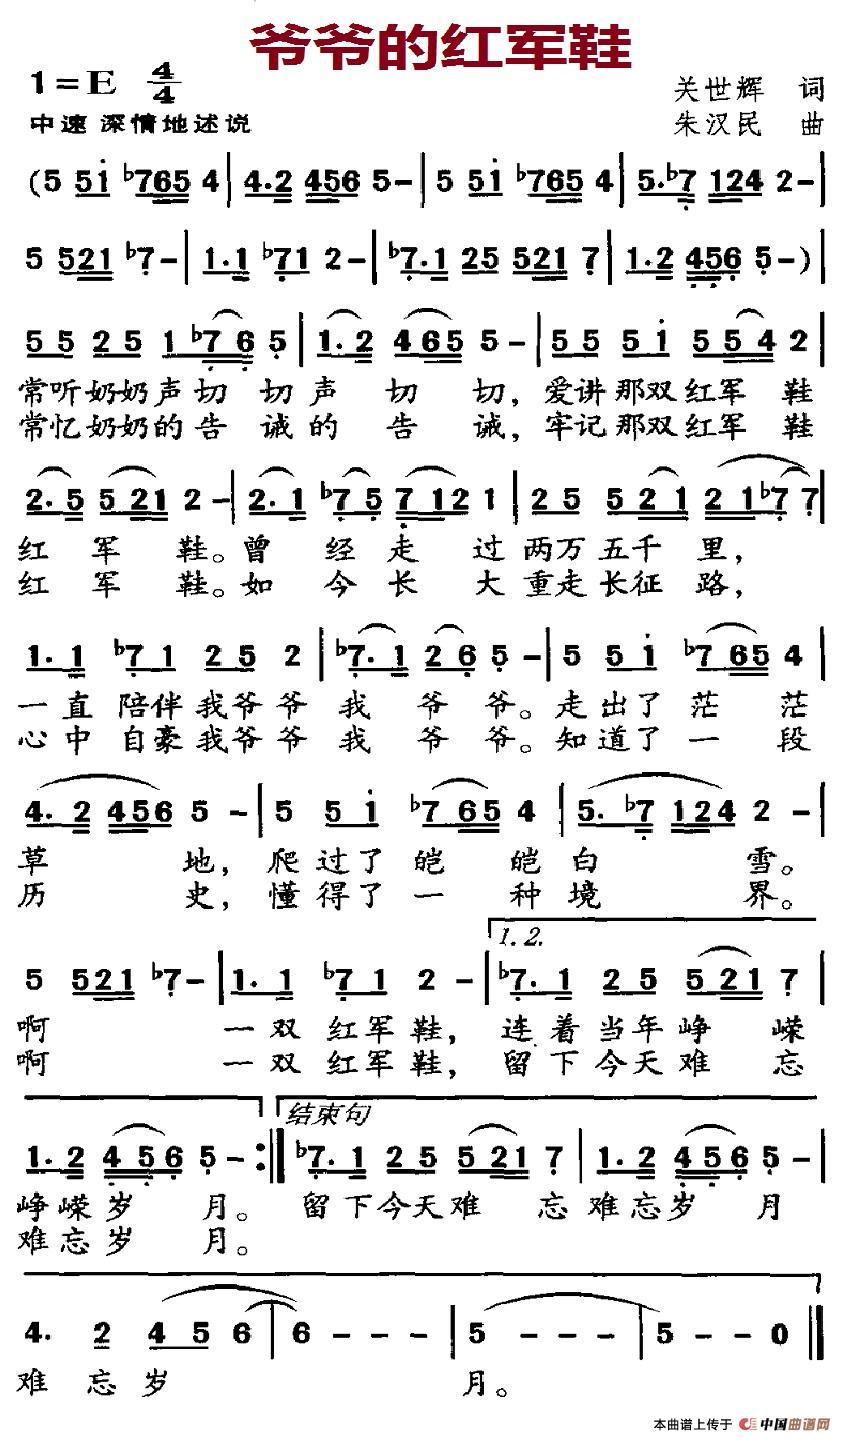 爷爷的红军鞋
1=E 4/4
关世辉 词
中速 深情地述说
朱汉民 曲
(5 51 b7654 | 4.2 456 5- | 5 51 b765 4 | 5.b7 124 2- |
5 521 b7- | 1.1 b71 2- | b7.1 25 521 7 | 1.2 456 5-)|
55 25 1b76 5 | 1.2 465 5- | 55 51 554 2 |
常听奶奶声切 切声 切 切,爱讲那双红军 鞋
常忆奶奶的告 诫的 告 诫,牢记那双红军 鞋
2.5 521 2- | 2.1 b75 7121 1 | 25 521 21b77 |
红 军 鞋。曾 经走 过两万五千 里,
红 军 鞋。如 今长 大重走长征 路,
1.1 b71 25 2 | b7.1 26 5- | 5 51 b765 4 |
一直陪伴我爷爷 我 爷 爷。走出了茫 茫
心中自豪我爷爷 我 爷 爷。知道了一 段
4.2 456 5- | 5 51 b765 4 | 5.b7 124 2- |
草 地,爬过了皑 皑白 雪。
历 史,懂得了一 种境 界。
1.2.
5 521 b7- | 1.1 b71 2- | b7.1 25 521 7 |
啊 一双红军鞋,连着当年峥 嵘
啊 一双红军鞋,留下今天难 忘
结束句
1.2 456 5- :| b7.1 25 521 7 | 1.2 456 5- |
峥嵘岁 月。留下今天难 忘难忘岁 月
难忘岁 月。
4. 2 45 6 | 6 - - - | 5 - - - | 5 - - 0 ‖
难 忘岁 月。
本曲谱上传于 中国曲谱网